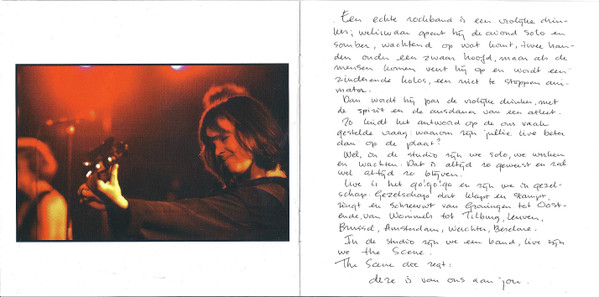 Een echte rockband is een vrolijke drin-
ker; weliswaar opent hij de avond solo en
somber, wachtend op wat komt, twee han-
den onder een zwaar hoofd, maar als de
mensen komen veert hij op en wordt een
zinderende kolos, een niet te stoppen ani-
mator.
Dan wordt hij pas de vrolijke drinker, met
de spirit en de ausdauer van een atleet.
Zo luidt het antwoord op de ons vaak
gestelde vraag: waarom zijn jullie live beter
dan op de plaat?
Wel, in de studio zijn we solo, we werken
en wachten. Dat is altijd zo geweest en zal
wel altijd zo blijven.
Live is het go!go!go en zijn we in gezel-
schap. Gezelschap dat klapt en stampt,
zingt en schreeuwt van Groningen tot Oost-
ende, van Wemmels tot Tilburg, Leuven,
Brussel, Amsterdam, Werchter, Beselare.
In de studio zijn we een band, live zijn
we The Scene.
The Scene die zegt:
deze is van ons aan jou.